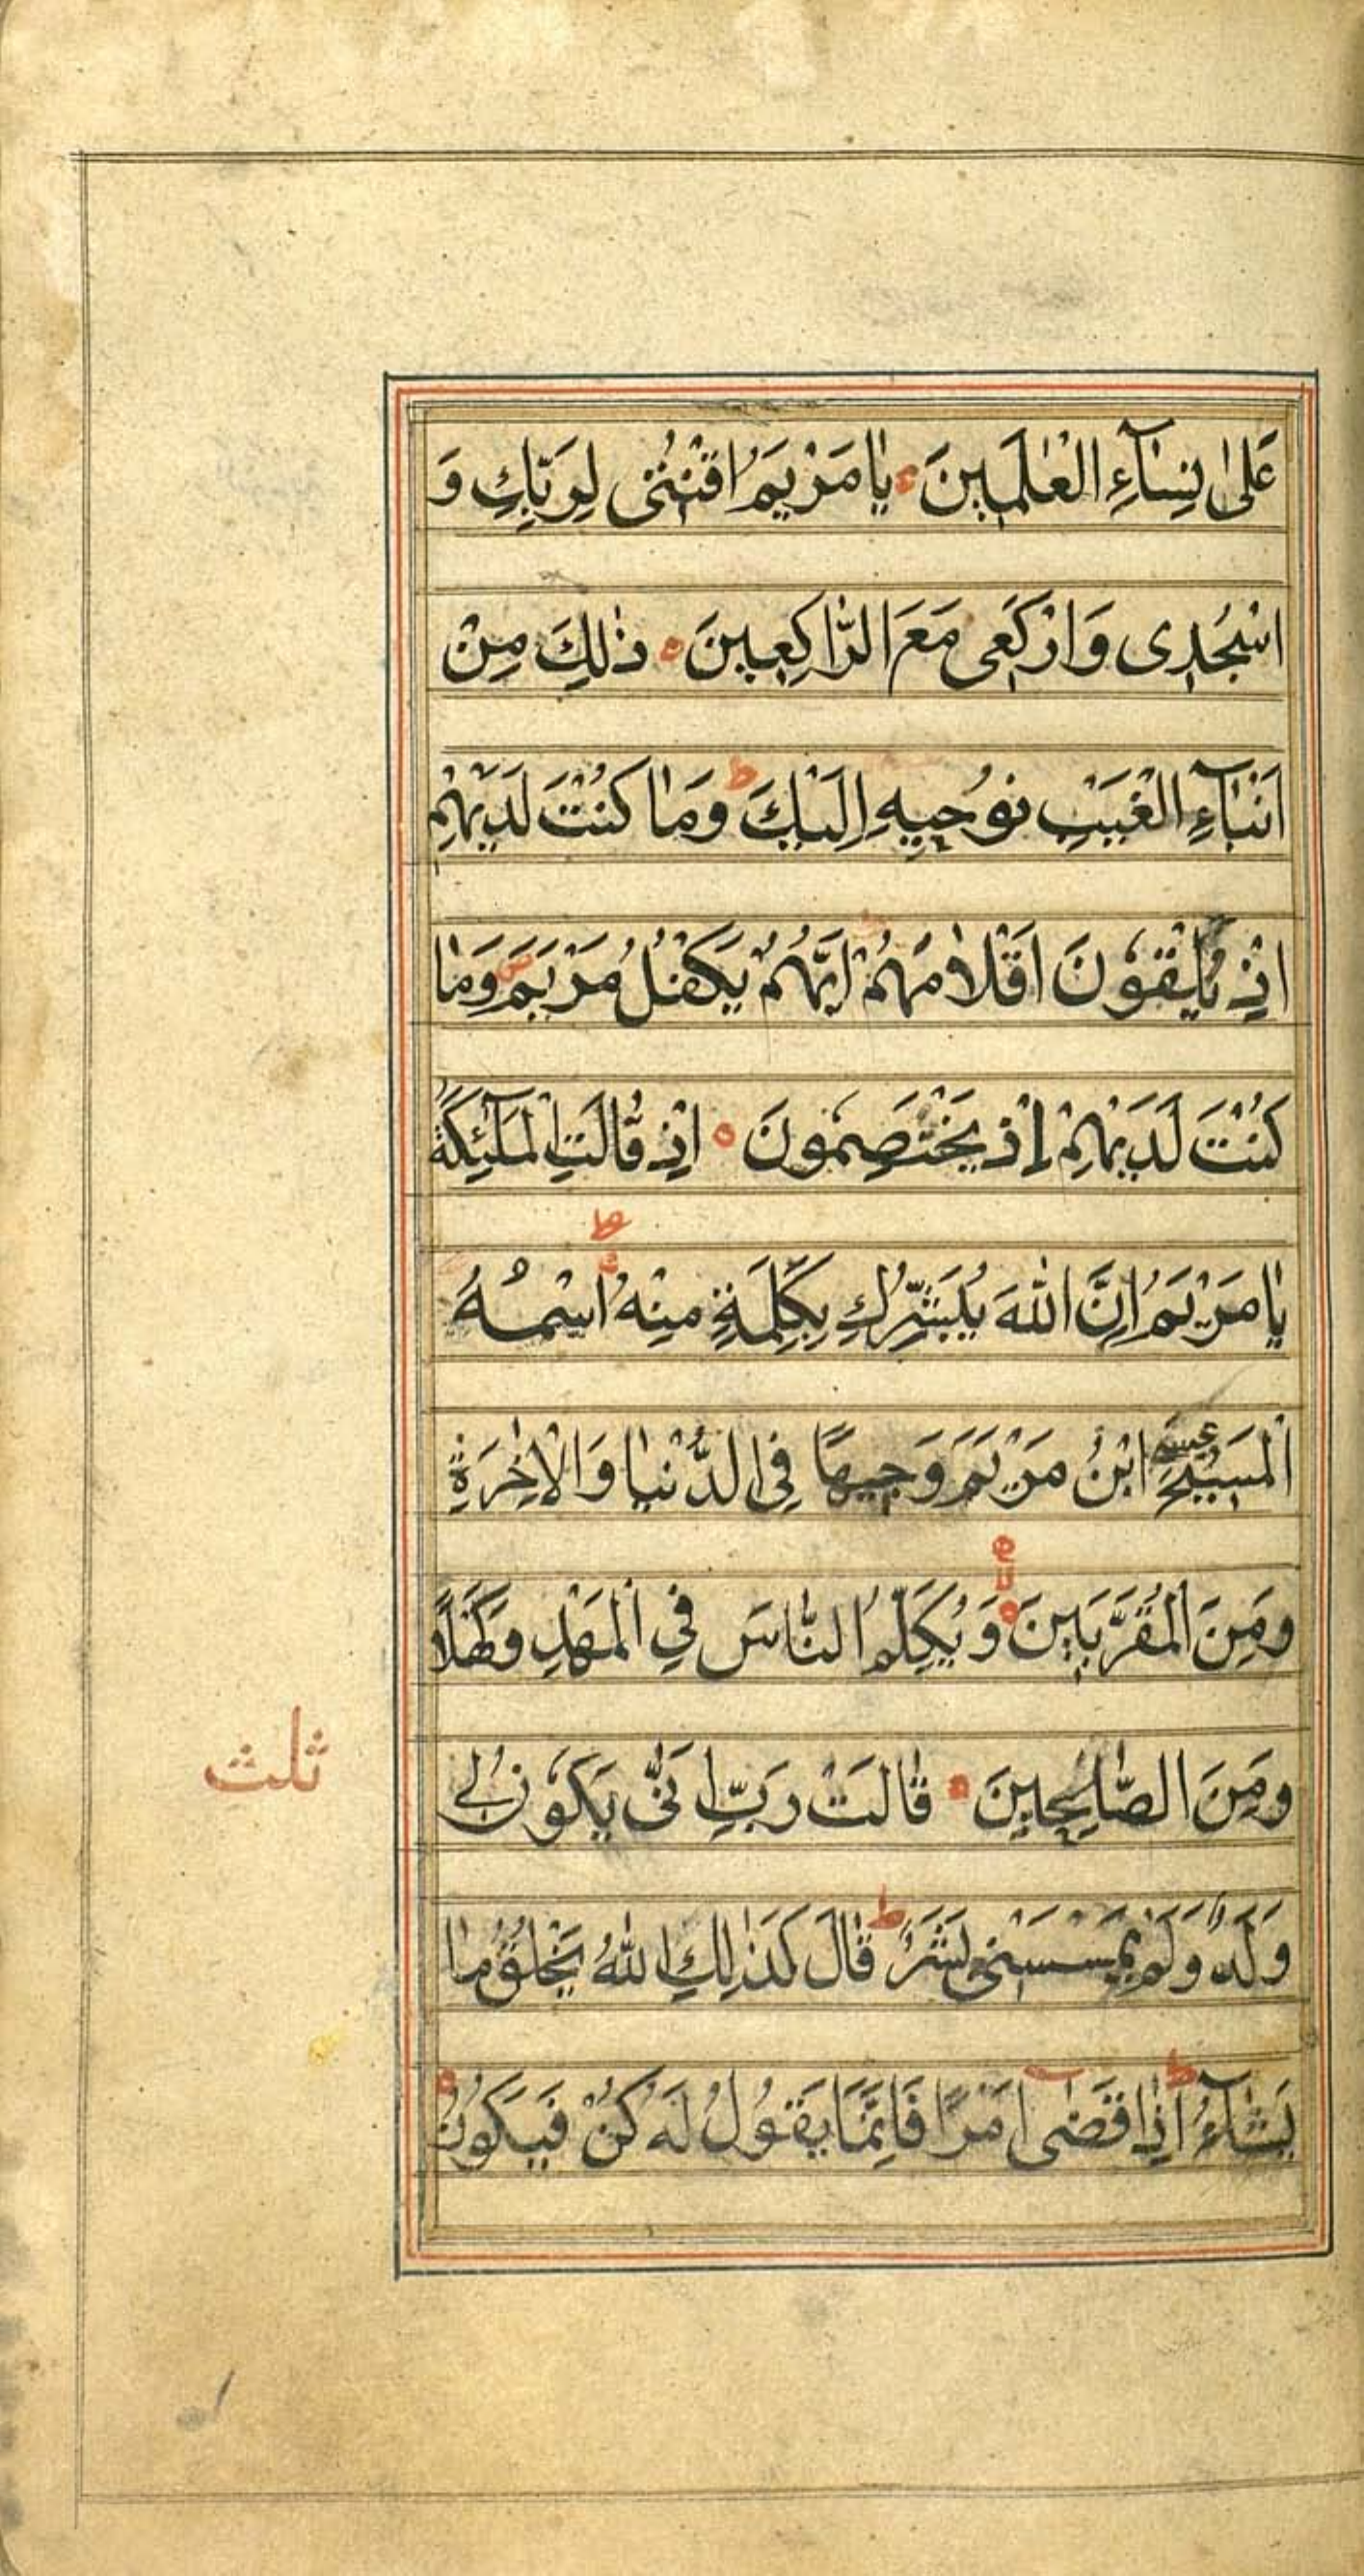 عَلىٰ نِسَآءِ الْعٰلَمِينَ يٰامَرْيَمُ اقْنُتى لِرَبِّكِ وَ
اسْجُدِى وَارْكَعِى مَعَ الرّٰاكِعِينَ ذٰلِكَ مِنْ
اَنْبٰآءِ الْغَيْبِ نُوحِيهِ اِلَيْكَ ط وَمٰا كُنْتَ لَدَيْهِمْ
اِذْ يُلْقُونَ اَقْلٰامَهُمْ اَيُّهُمْ يَكْفُلُ مَرْيَمَ ص وَمٰا
كُنْتَ لَدَيْهِمْ اِذْ يَخْتَصِمُونَ اِذْ قٰالَتِ الْمَلٰٓئِكَةُ
يٰامَرْيَمُ اِنَّ اللّٰهَ يُبَشِّرُكِ بِكَلِمَةٍ مِنْهُ اسْمُهُ
الْمَسِيْحُ عيسى ابْنُ مَرْيَمَ وَجِيهًا فِى الدُّنْيٰا وَالْاٰخِرَةِ
وَمِنَ الْمُقَرَّبِينَ وَيُكَلِّمُ النّٰاسَ فِي الْمَهْدِ وَكَهْلًا
وَمِنَ الصّٰالِحِينَ قٰالَتْ رَبِّ اَنّٰى يَكُونُ لِى
وَلَدٌ وَلَمْ يَمْسَسْنِى بَشَرٌ ط قٰالَ كَذٰلِكِ اللّٰهُ يَخْلُقُ مٰا
يَشٰآءُ ط اِذٰا قَضٰى اَمْرًا فَاِنَّمٰا يَقُولُ لَهُ كُنْ فَيَكُونُ
ثلث